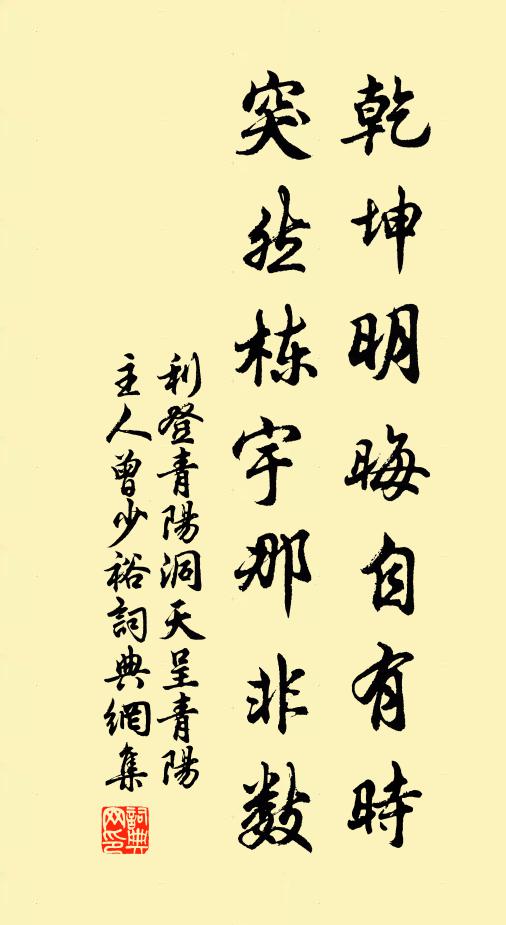 乾坤明晦自有時
突然栋宇那非数
利登青陽洞天呈青陽
主人曾少裕詞典網集
詞典
网印